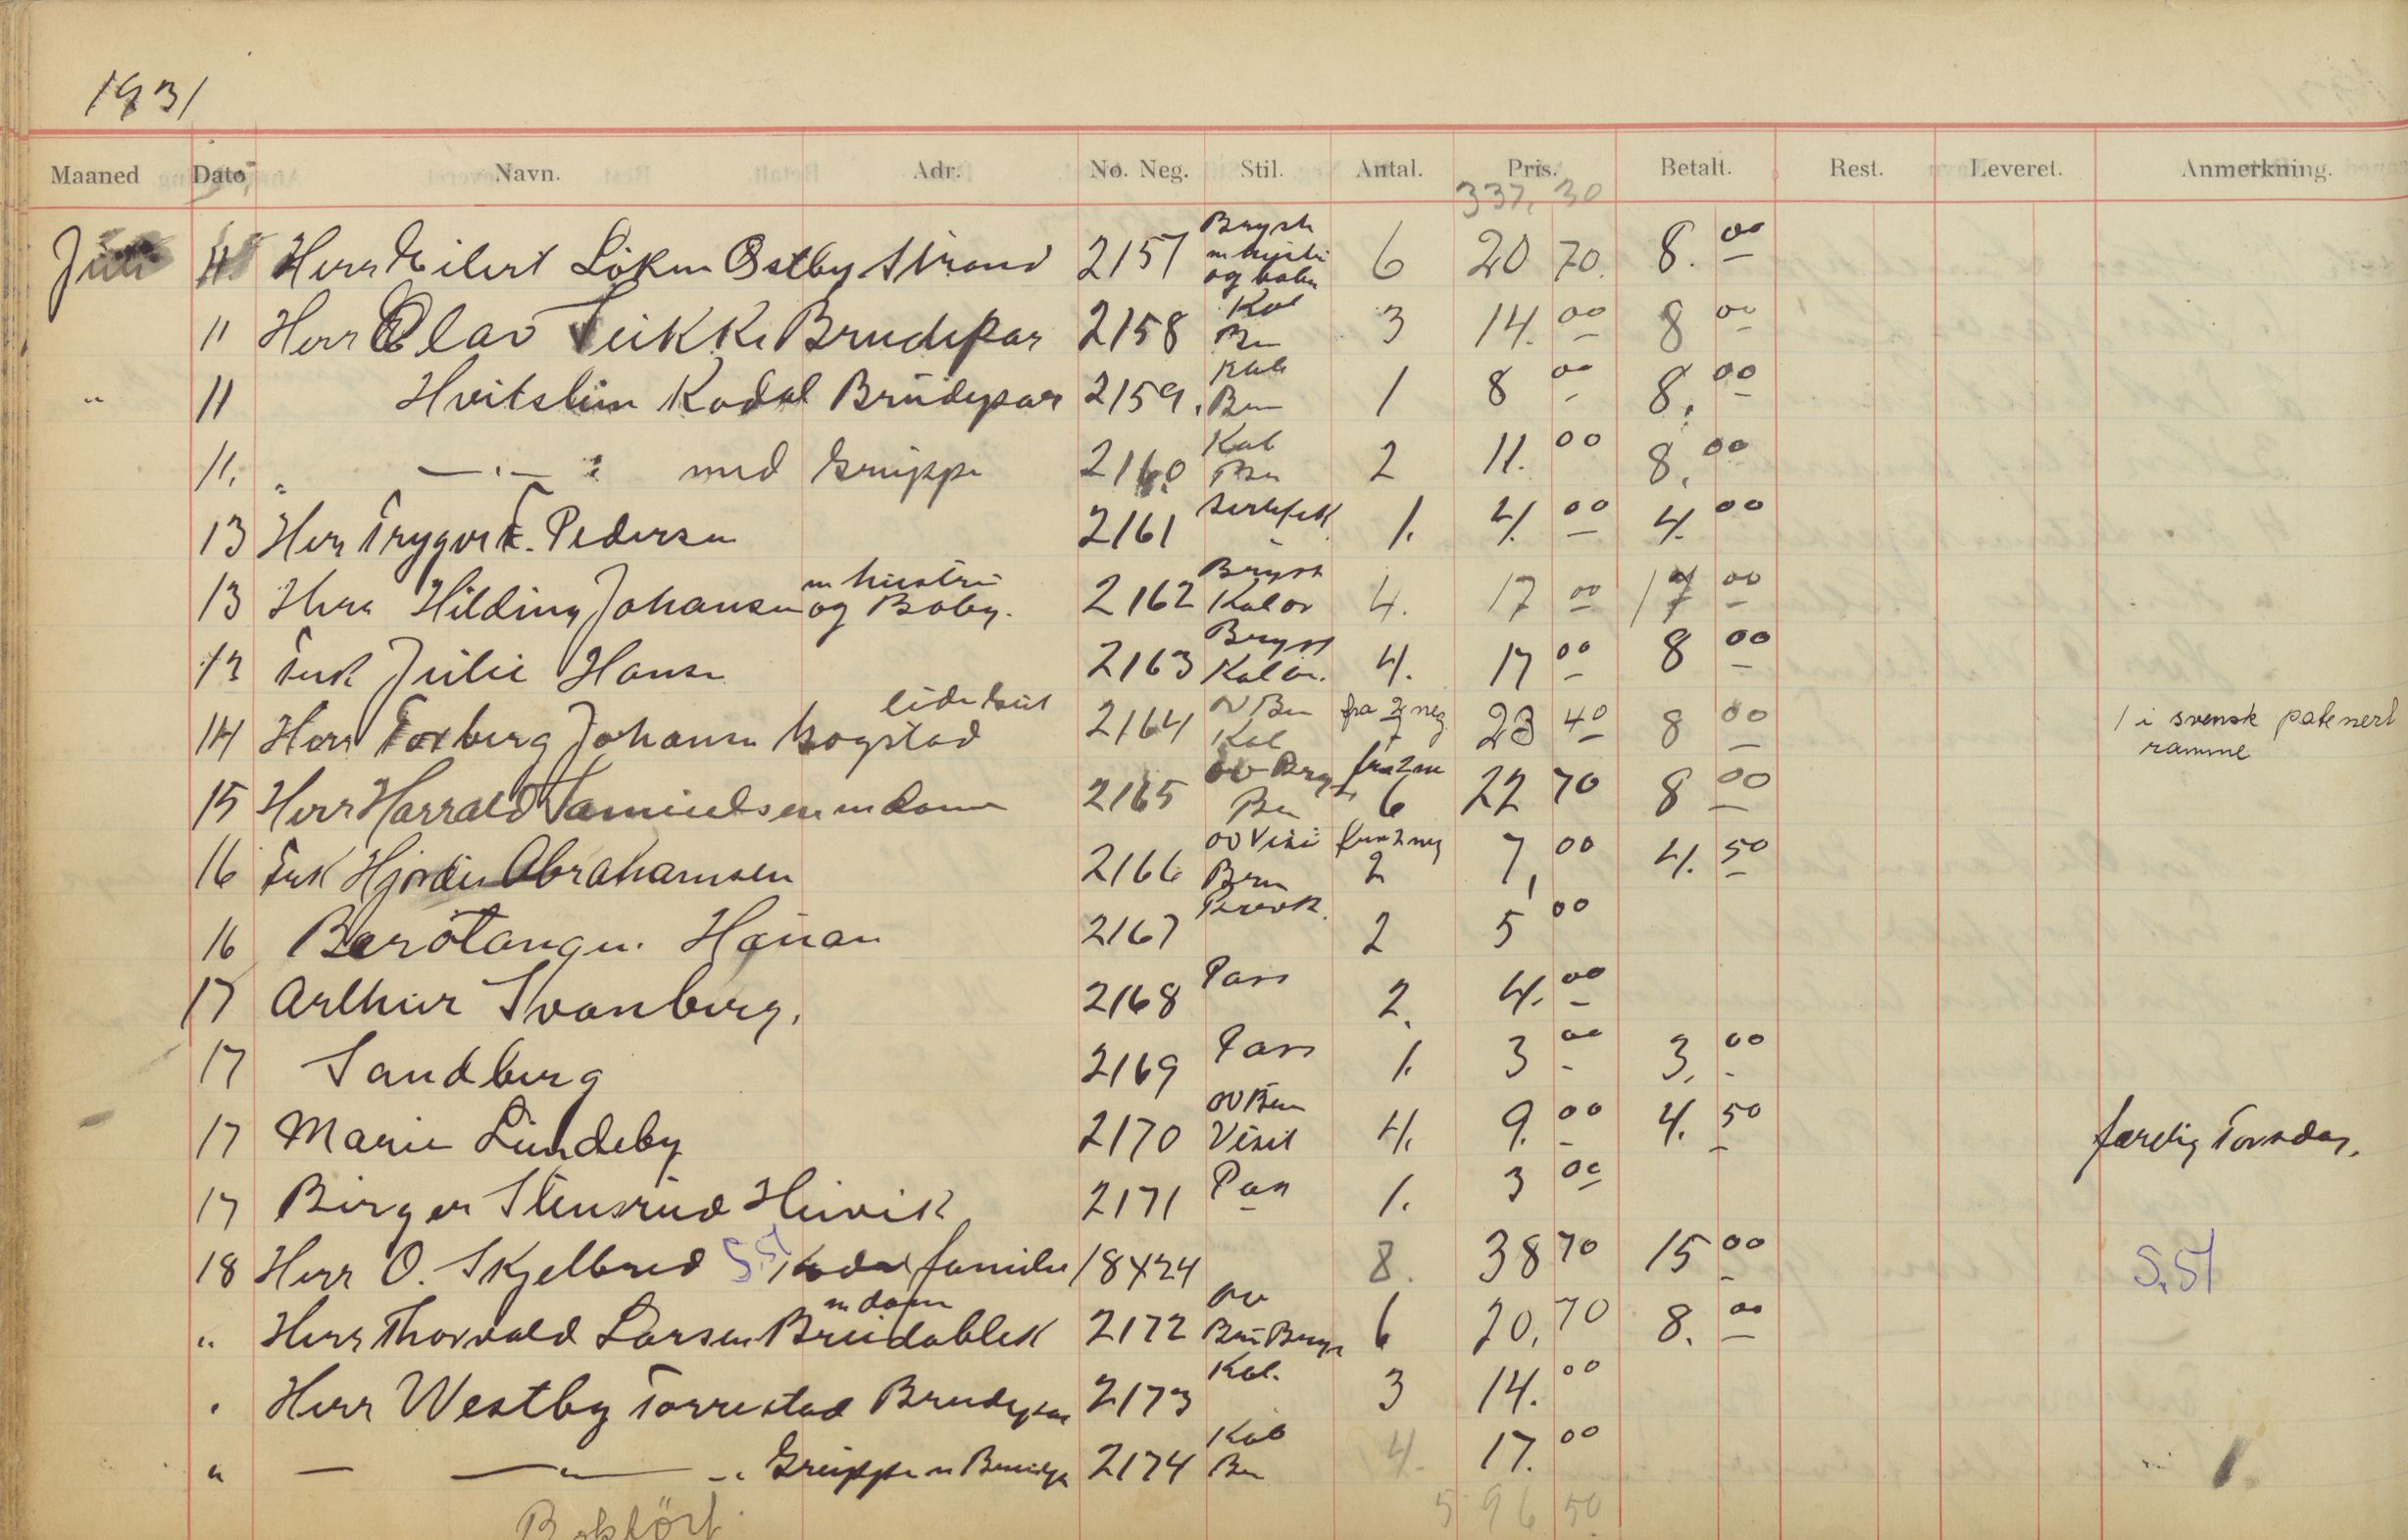 1931
Maaned Dato Navn. Adr. No. Neg. Stil. Antal. Pris. Betalt. Rest. Leveret. Anmerkning.
337, 30
Juli 11 Herr Eilert Löken Østby Strand 2157 Bryst m hustru og 6 20 70. 8. 00
11 Herr Olav Brudepar 2158 Kab Br 3 14. 00 8 00
" 11 Hvitstein Kodal Brudepar 2159. Kab Brun 1 8 00 8. 00
11. " — " — med Gruppe 2160 Kab Brun 2 11. 00 8. 00
13 Herr Trygve F. Pedersen 2161 1. 4. 00 4. 00
13 Herr Hilding Johansen m hustru og Baby. 2162 Bryst Kolor 4. 17 00 17 00
13 Frk Julie Hansen 2163 Bryst Kolor. 4. 17 00 8 00
14 Herr Torberg Johansen Bogstad 2164 OV Brun Kab fra 2 neg 23 40 8 00 1 i svensk patenert ramme
15 Herr Harrald Samuelsen m dame 2165 OV Bry Brun fra 2 ne 6 22 70 8 00
16 Frk Hjördis Abrahamsen 2166 OV Visi Brun fra 2 neg 2 7, 00 4. 50
16 Hauan 2167 2 5 00
17 Arthur Svanberg. 2168 Pass 2. 4. 00
17 Sandberg 2169 Pass 1. 3 00 3. 00
17 Marie Lundeby 2170 OV Brun Visit 4. 9. 00 4. 50 færdig Torsdag.
17 Birger Stensrud Huvik 2171 Pass 1. 3 00
18 Herr O. Skjelbred S.51 Kodal familie 18X24 8. 38 70 15 00 S.51
" Herr Thorvald Larsen m dame Breidablik 2172 OV Bru Brys 6 20. 70 8. 00
" Herr Westby Torrestad Brudepar 2173 Kab. 3 14. 00
" — — " — " Gruppe m Brudep 2174 Kab Br 4. 17. 00
Bokført. 596 50